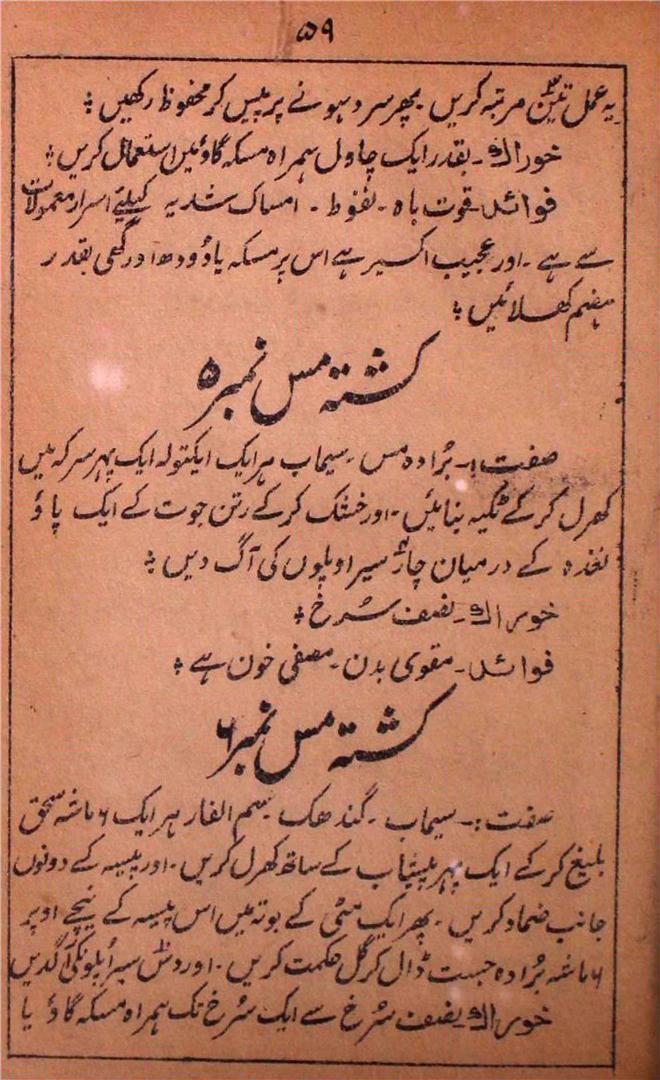 ۵۹
یہ عمل تین۳ مرتبہ کریں پھر سرد ہونے پر پیس کر محفوظ رکھیں ؛
خوراک ۔ بقدر ایک چاول ہمراہ مسکہ گاؤ میں استعمال کریں ؛
فوائد ۔ قوت باہ ۔ نغوظ ۔ امساک شدیہ کیلئے اسرار معمولات
سے ہے ۔ اور عجیب اکسیر ہے اس پر مسکہ یا دودھ اور گھی بقدر
ہضم کھلائیں ؛
کشتہ مس نمبر ۵
صفت :۔ بُرادہ مس ۔ سیماب ہر ایک ایکتولہ ایک پہر سرکہ میں
کھرل کر کے ٹکیہ بنائیں ۔ اور خشک کر کے رتن جوت کے ایک پاؤ
نغدہ کے درمیان چار۴ سیر اوپلوں کی آگ دیں ؛
خوراک ۔ نصف سُرخ ؛
فوائد ۔ مقوی بدن ۔ مصفی خون ہے ؛
کشتہ مس نمبر ۶
صفت :۔ سیماب ۔ گندھک سم الفار ہر ایک ۶ ماشہ سحق
بلیغ کر کے ایک پہر پیشاب کے ساتھ کھرل کریں ۔ اور پیسہ کے دونوں
جانب ضماد کریں ۔ پھر ایک مٹی کے بوتہ میں اس پیسہ کے نیچے اوپر
۶ ماشہ بُرادہ جست ڈال کر گل حکمت کریں ۔ اور دس سیر اُپلونکی آگدیں
خوراک نصف سُرخ سے ایک سُرخ تک ہمراہ مسکہ گاؤ یا